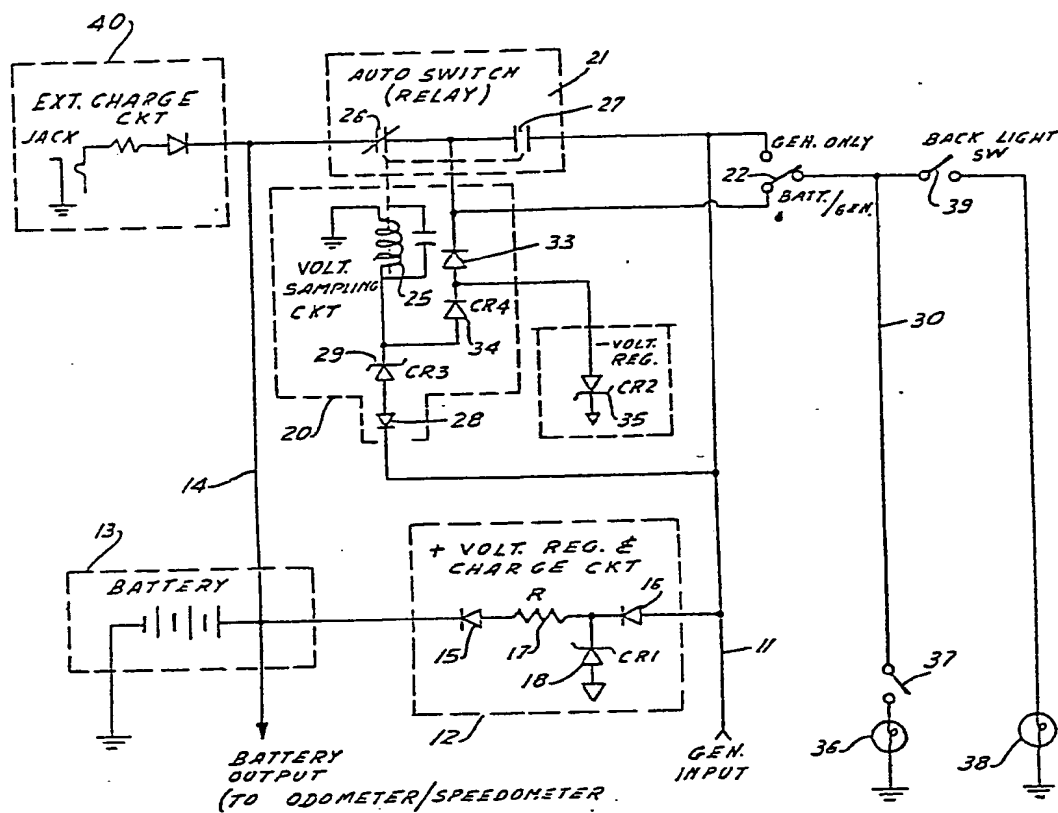 40
EXT. CHARGE
CKT
JACK
AUTO SWITCH
(RELAY)
21
26
27
GEN. ONLY
22
BATT./GEN.
BACK LIGHT
SW
39
VOLT.
SAMPLING
CKT
25
33
CR4
34
29
CR3
20
28
-VOLT.
REG.
CR2
35
30
14
13
BATTERY
+ VOLT. REG. &
CHARGE CKT
R
16
15
17
18
CR1
12
11
37
36
38
BATTERY
OUTPUT
(TO ODOMETER/SPEEDOMETER
GEN.
INPUT